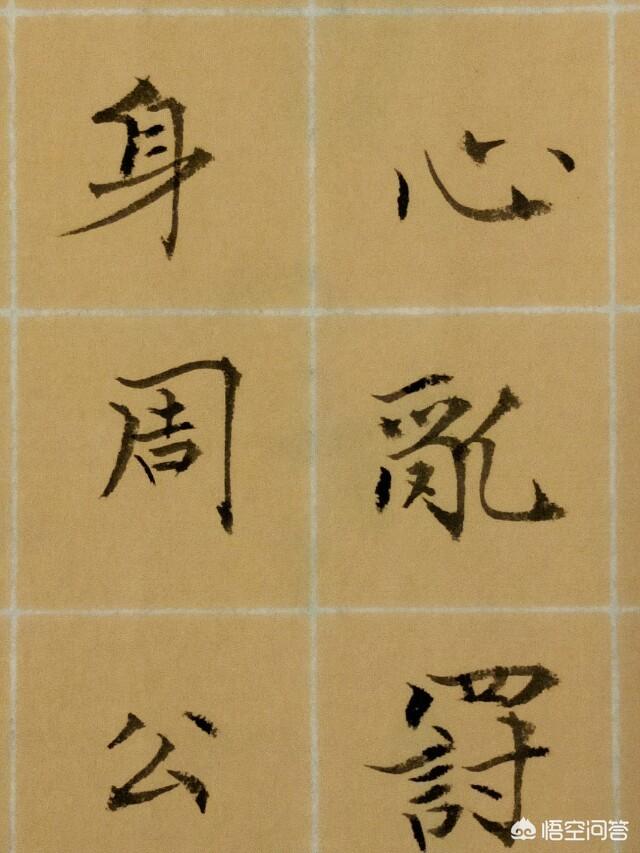 心亂罸
身周公
悟空问答